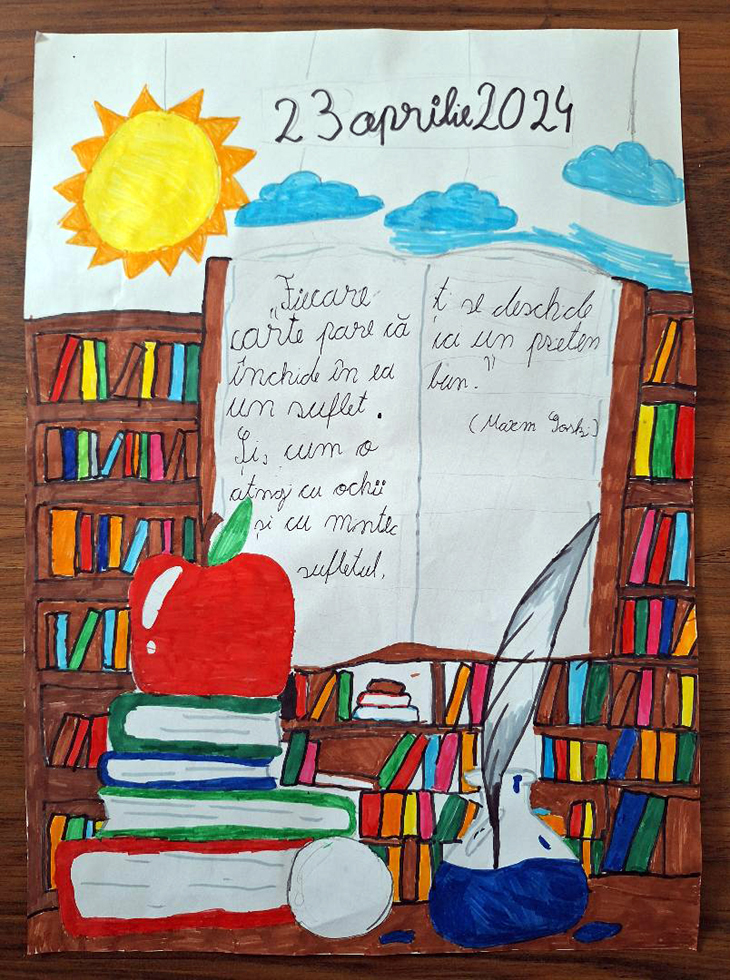 23 aprilie 2024
„Fiecare
carte pare că
închide în ea
un suflet.
Și, cum o
ating cu ochii
și cu mintea
sufletul,
i se deschide
ca un prieten
bun.”
(Maxim Gorki)